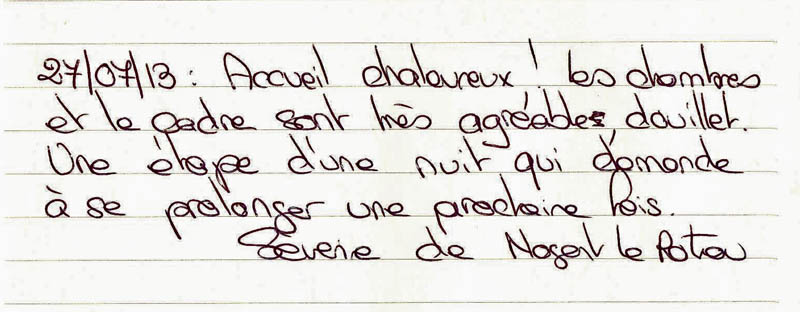 27/07/13 : Accueil chaleureux ! Les chambres
et le cadre sont très agréables, douillet.
Une étape d'une nuit qui demande
à se prolonger une prochaine fois.
de Nogent le